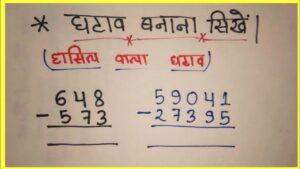 * घटाव बनाना सिखें।
(हासिल वाला घटाव)
648 59041
- 573 - 27395